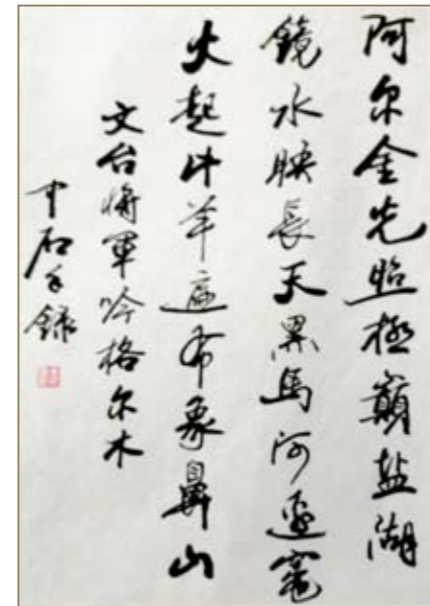 阿尔金光照极巅盐湖
镜水映長天黑馬河邊竈
火起牛羊遍布象鼻山
文台将軍吟格尔木
中石手録